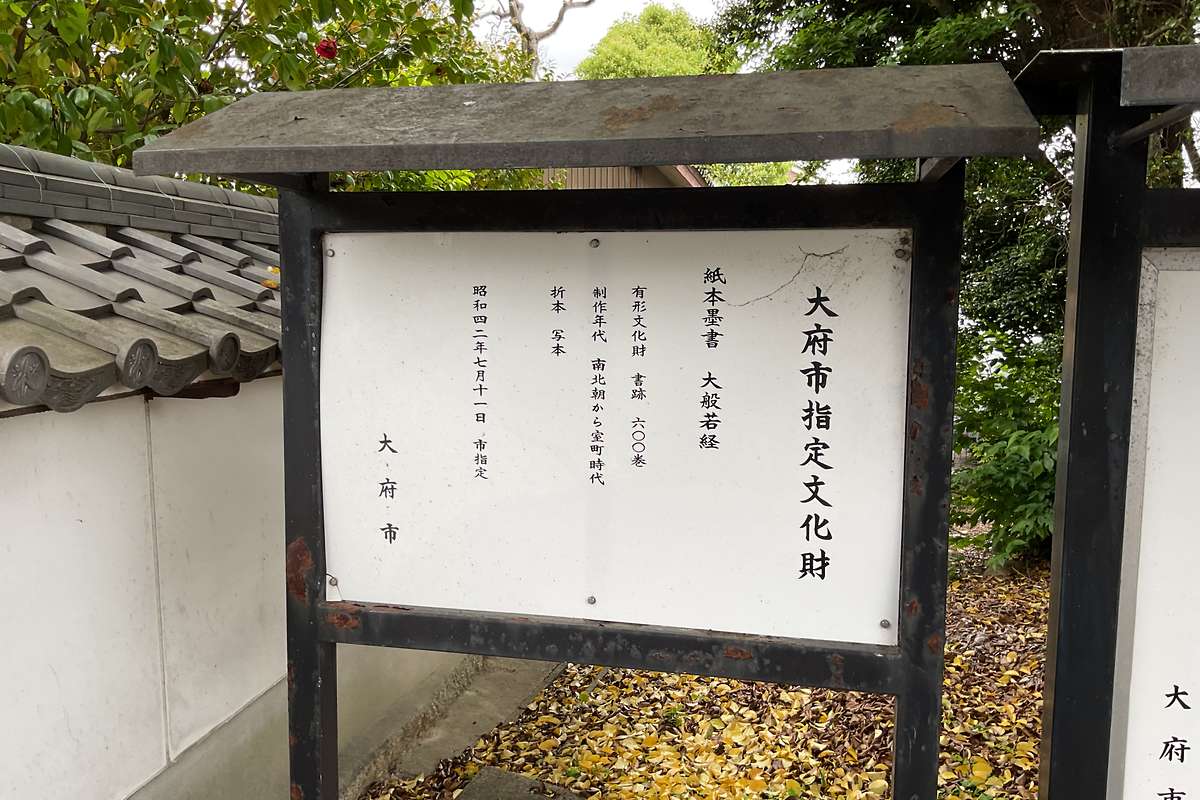 大府市指定文化財
紙本墨書　大般若経
有形文化財　書跡　六〇〇巻
制作年代　南北朝から室町時代
折本　写本
昭和四二年七月十一日　市指定
大府市
大府市